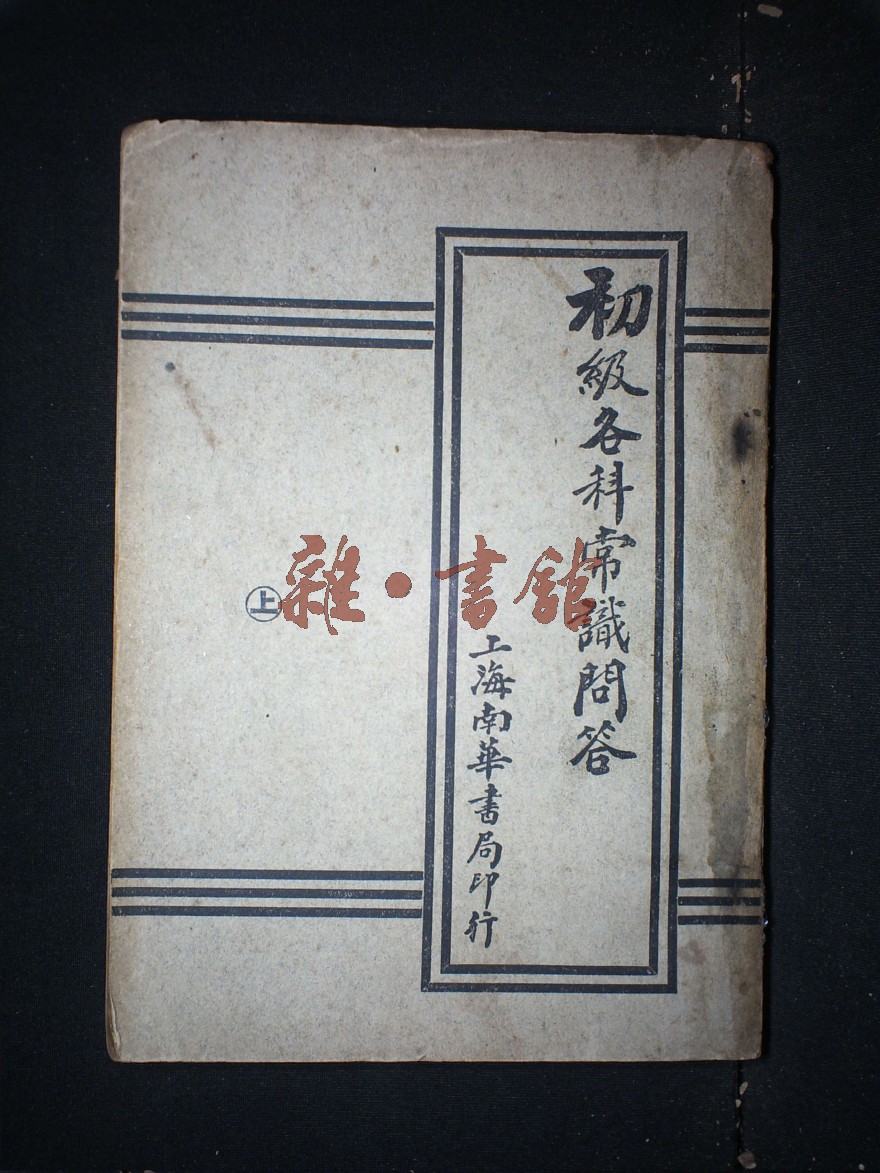 初級各科常識問答
上海南華書局印行
上
雜·書館